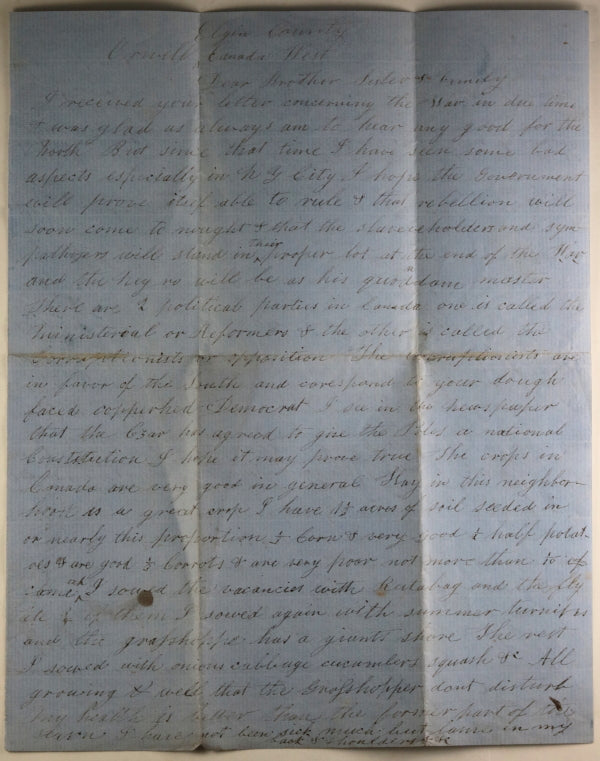 Elgin County
Orwell Canada West
Dear Brother Sister & family
I received your letter concerning the War in due time
& was glad as always am to hear any good for the
North But since that time I have seen some bad
aspects especially in N Y City I hope the Government
will prove itself able to rule & that rebellion will
soon come to nought & that the slaveholders and sym-
pathizers will stand in their proper lot at the end of the War
and the negro will be as his quondam master
There are 2 political parties in Canada one is called the
Ministerial or Reformers & the other is called the
Corruptionists or opposition The corruptionists are
in favor of the South and corespond to your dough
faced copperhed Democrat I see in the Newspaper
that the Czar has agreed to give the Poles a national
Constitution I hope it may prove true The crops in
Canada are very good in general Hay in this neighbor-
hood is a great crop I have 1½ acres of soil seeded in
or nearly this proportion ½ Corn & very good & half potat-
oes & are good ½ corrots & are very poor not more than to of
came up I sowed the vacancies with Rutabag and the fly
ate of them I sowed again with summer turnips
and the grasshoppe has a giants share The rest
I sowed with onions cabbage cucumbers squash &c All
growing & well that the Grasshopper dont disturb
my health is better than the former part of the
have not been sick much but lame in my
back & shoulders &c